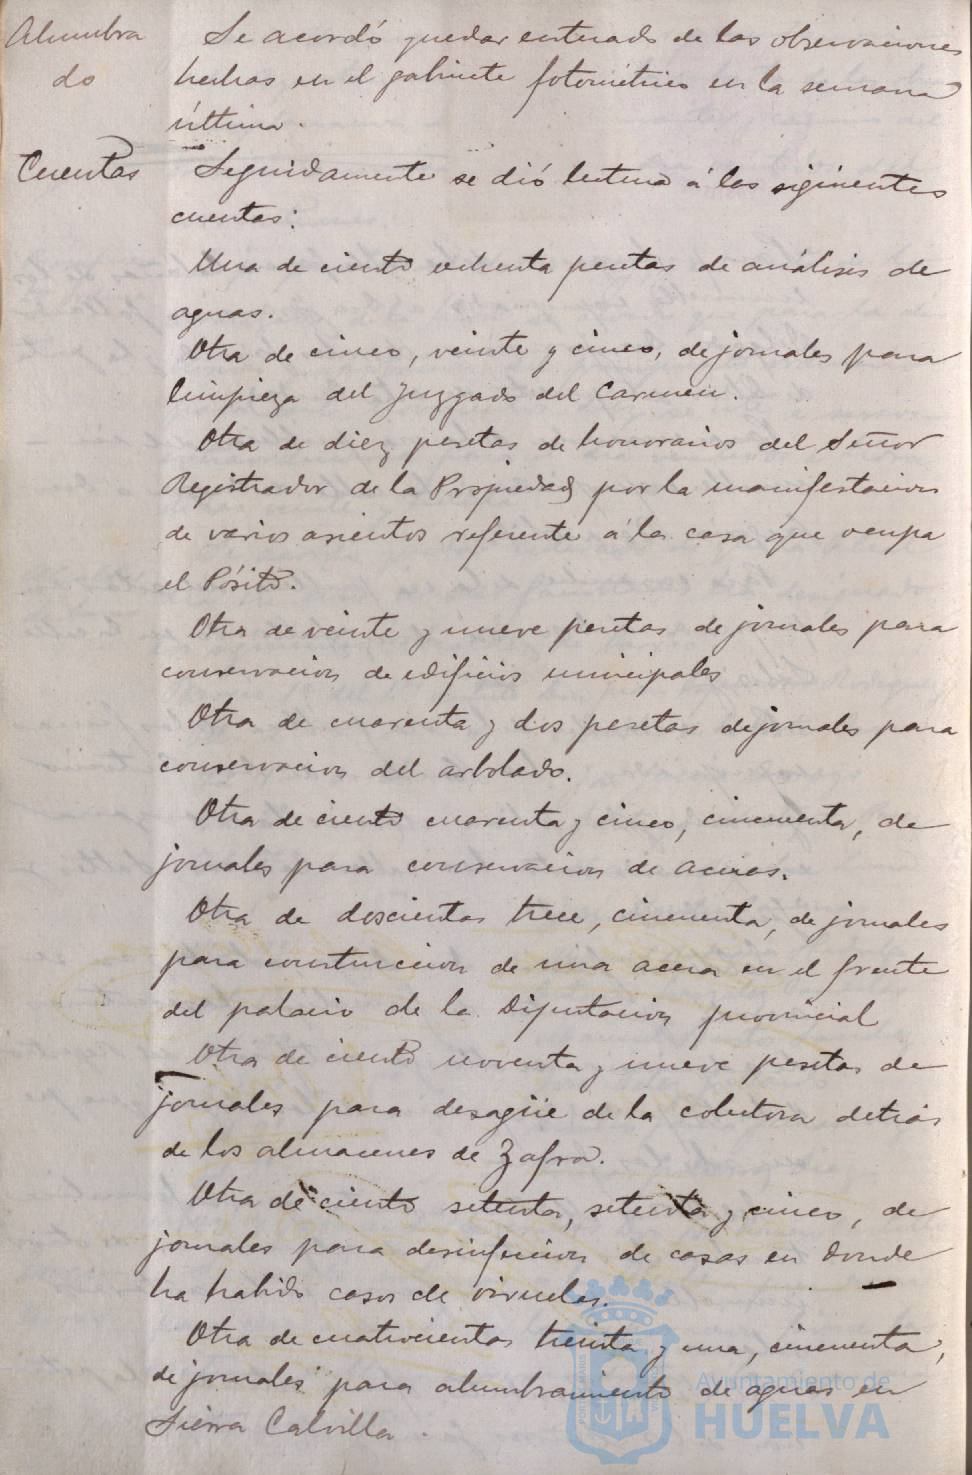 Alumbra Se acordó quedar enterado de las observaciones
do hechas en el gabinete fotométrico en la semana
última.
Cuentas Seguidamente se dió lectura á las siguientes
cuentas:
Una de ciento ochenta pesetas de análisis de
aguas.
Otra de cinco, veinte y cinco, de jornales para
limpieza del Juzgado del Carmen.
Otra de diez pesetas de honorarios del Señor
Registrador de la Propiedad por la manifestacion
de varios asientos referente á la casa que ocupa
el Pósito.
Otra de veinte y nueve pesetas de jornales para
conservacion de edificios municipales
Otra de cuarenta y dos pesetas de jornales para
conservacion del arbolado.
Otra de ciento cuarenta y cinco, cincuenta, de
jornales para conservacion de aceras.
Otra de doscientas trece, cincuenta, de jornales
para construccion de una acera en el frente
del palacio de la Diputacion provincial
Otra de ciento noventa y nueve pesetas de
jornales para desagüe de la colectora detrás
de los almacenes de Zafra.
Otra de ciento setenta, setenta y cinco, de
jornales para desinfeccion de casas en donde
ha habido casos de viruelas.
Otra de cuatrocientas treinta y una, cincuenta,
de jornales para alumbramiento de aguas en
Sierra Calvilla.
Ayuntamiento de
HUELVA